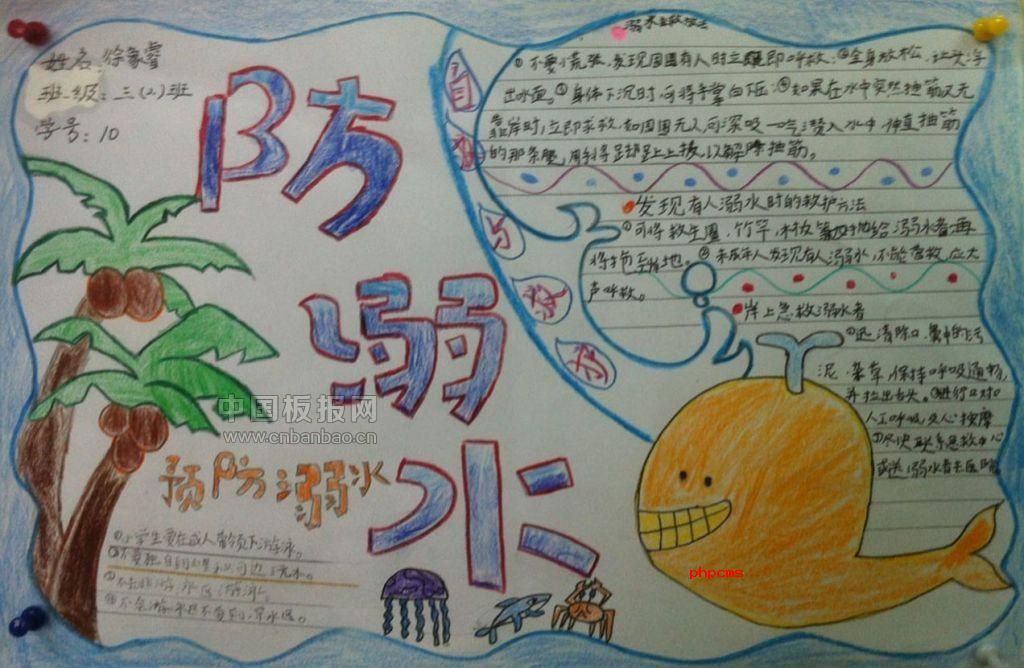 姓名:徐家睿
班级:三(2)班
学号:10
防溺水
预防溺水
①小学生要在成人带领下游泳。
自救与救护
溺水自救方法
①不要慌张,发现周围有人时立即呼救:②全身放松,让头浮
出水面。③身体下沉时,可将手掌向下压:④如果在水中突然抽筋又无
靠岸时,立即求救,如周围无人,可深吸一气潜入水中,伸直抽筋
的那条腿,用手将足趾上拔,以解除抽筋。
发现有人溺水时的救护方法
①可将救生圈、竹竿、木板等抛给溺水者再
将拖至岸地。②未成年人发现有人溺水,不能营救,应大
声呼救。
岸上急救溺水者
①迅清除口、鼻中的污
泥、杂草,保持呼吸通畅,
并拉出舌头。②进行口对
人工呼吸及心按摩
③尽快联系急救中心
或送溺水者去医院
中国板报网
www.cnbanbao.cn
phpcms